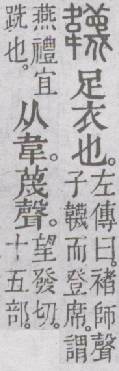 韤 足衣也。左傳曰。褚師聲子韤而登席。謂
燕禮宜跣也。从韋。蔑聲。望發切。十五部。